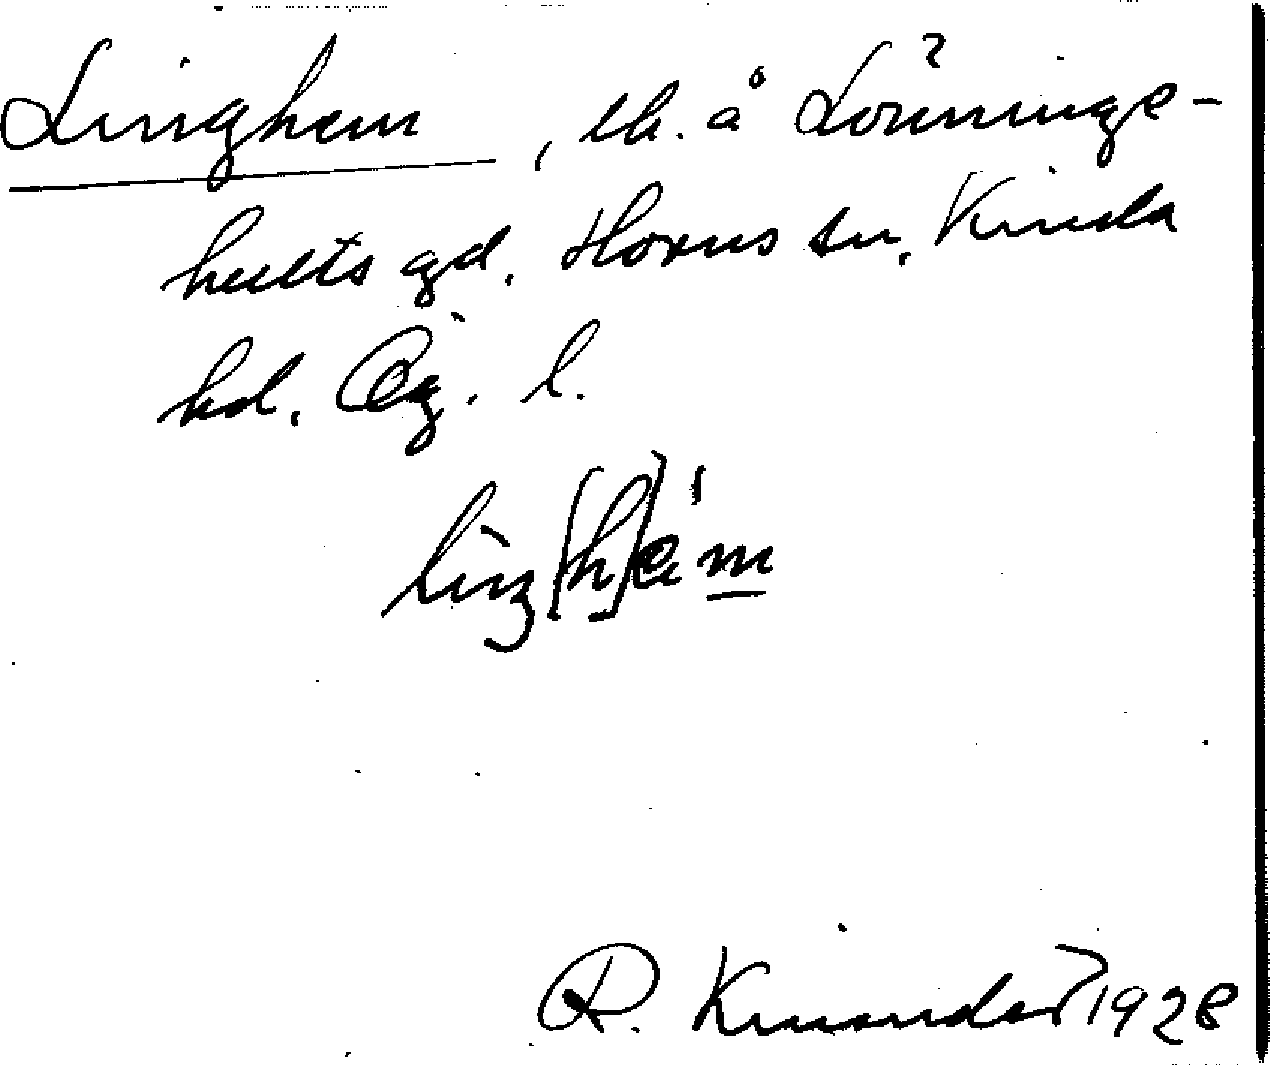 Linghem, lh. å Lönninge-
hults gd. Horns sn, Kinda
hd. Ög. l.
liŋ[h]em
R. Kinander 1928